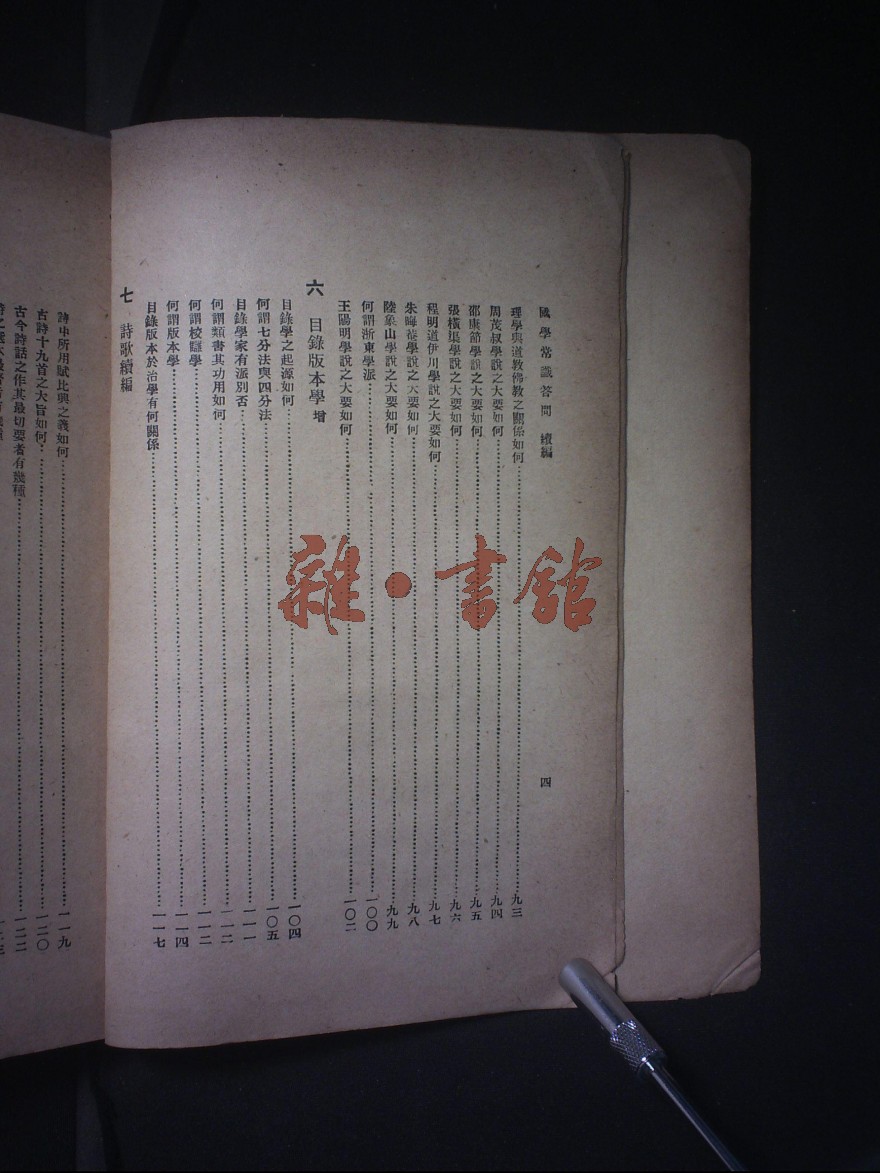 國學常識答問 續編
四
理學與道教佛教之關係如何 九三
周茂叔學說之大要如何 九四
邵康節學說之大要如何 九五
張橫渠學說之大要如何 九六
程明道伊川學說之大要如何 九七
朱晦菴學說之大要如何 九八
陸象山學說之大要如何 九九
何謂浙東學派 一〇〇
王陽明學說之大要如何 一〇二
六 目錄版本學 增
目錄學之起源如何 一〇四
何謂七分法與四分法 一〇五
目錄學家有派別否 一一一
何謂類書其功用如何 一一二
何謂校讎學 一一二
何謂版本學 一一四
目錄版本於治學有何關係 一一七
七 詩歌續編
詩中所用賦比興之義如何 一一九
古詩十九首之大旨如何 一二〇
古今詩話之作其最切要者有幾種 一二二
雜·書館